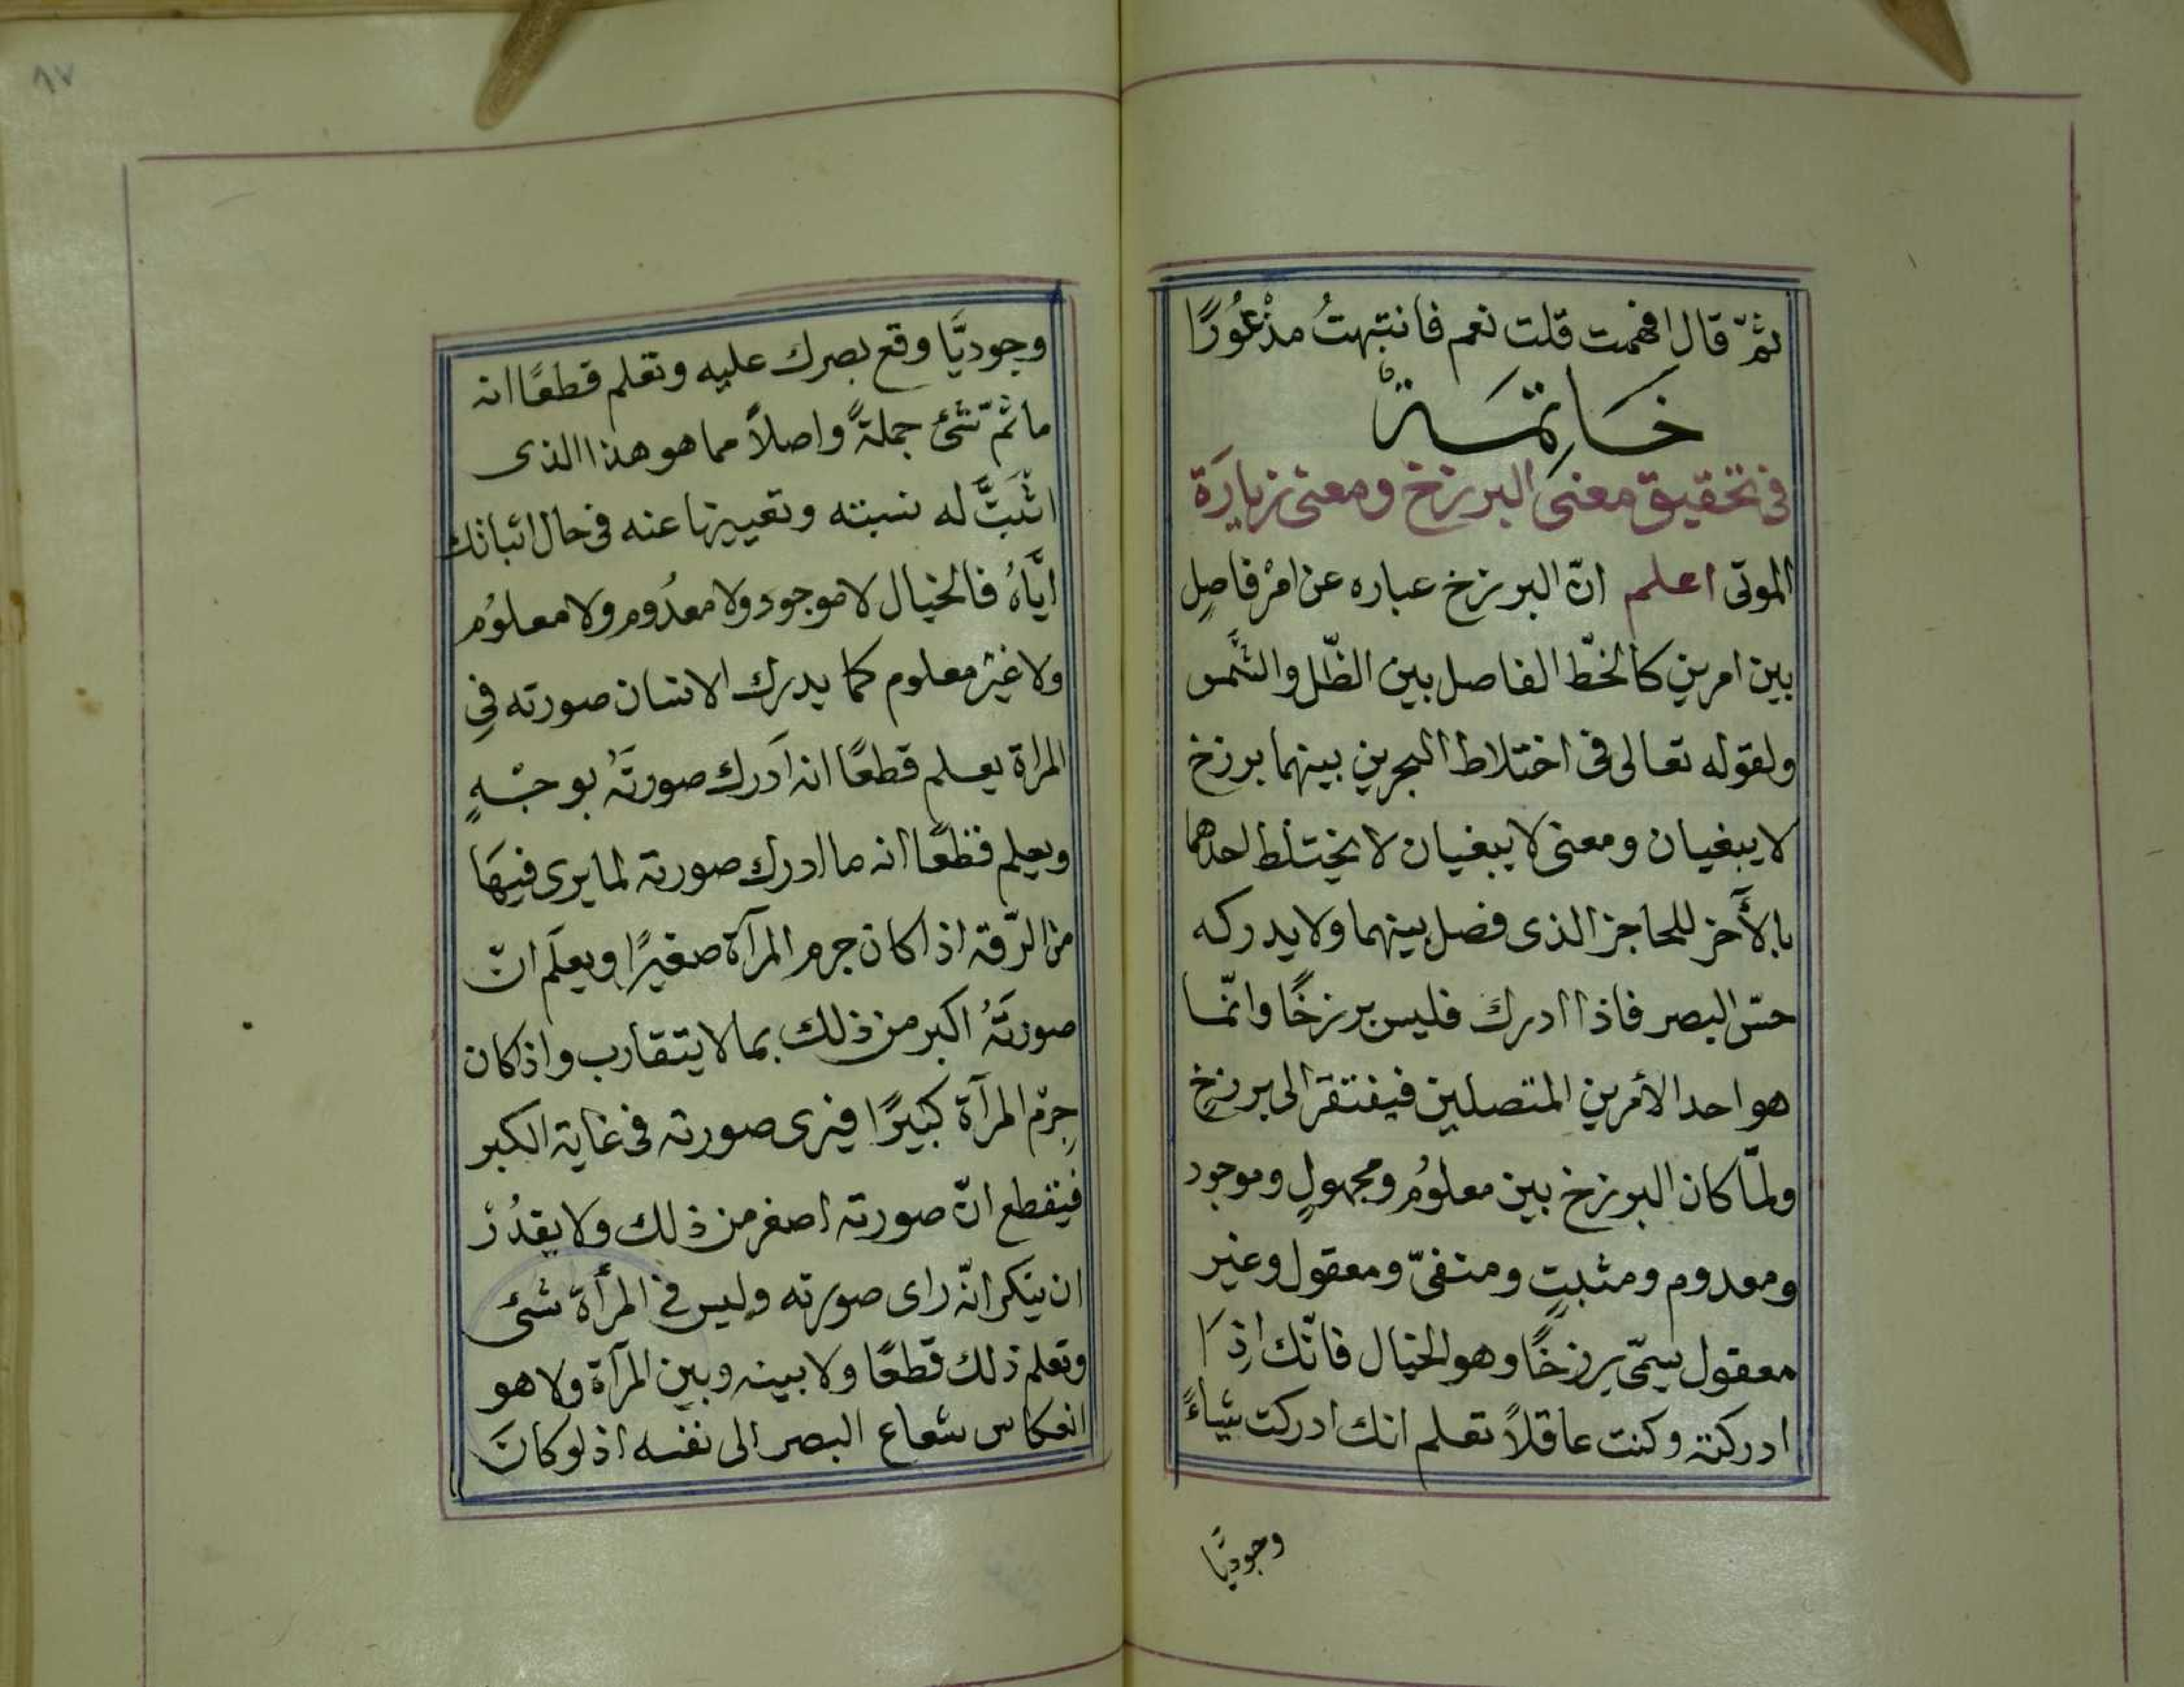 ثمّ قال افهمت قلت نعم فانتبهتُ مذْعُورًا
خَاتِمَة
فى تحقيق معنى البرزخ ومعنى زيارَة
الموتى اعلم انّ البرزخ عباره عن امْرٍ فاصِل
بين امرين كالخطّ الفاصل بين الظّل والشَّمس
ولقوله تعالى فى اختلاط البحرين بينهما برزخ
لا يبغيان ومعنى لا يبغيان لا يختلط احدهما
بالأَخر للحاجز الذى فصل بينهما ولا يدركه
حسّ البصر فاذا ادرك فليس برزخًا وانّما
هو احد الأمرين المتصلين فيفتقر الى برزخ
ولمّا كان البرزخ بين معلوُم ومجهولٍ وموجود
ومعدوم ومثبتٍ ومنفىّ ومعقول وغير
معقول سمّى برزخًا وهو الخيال فانّك اِذا
ادركته وكنت عاقلاً تعلم انك ادركت شياءً
وجوديّا
٨٧
وجوديَّا وقع بصرك عليه وتعلم قطعًا انه
ما ثمّ شئ جملةً واصلاً مما هو هذا الذى
اثْبَتَّ له نسبته وتعييزها عنه فى حال اثباتك
ايَّاهُ فالخيال لا موجود ولا معدُوم ولا معلوُم
ولا غيْر معلوم كما يدرك الانسان صورته فِي
المراة يعلم قطعًا انه اَدرك صورتَهُ بوجْهٍ
ويعلم قطعًا انه ما ادرك صورته لما يرى فيهَا
من الدّقة اذا كان جرم المرآة صغيرًا ويعلَم انّ
صورتَهُ اكبر من ذلك بما لا يتقارب واذ كان
جِرْم المرآة كبيرًا فيرى صورته فى غاية الكبر
فيقطع انّ صورته اصغر من ذلك ولا يقدُرْ
ان ينكر انّه راى صورته وليس فى المرأة شئى
وتعلم ذلك قطعًا ولا بينه وبين المرآة ولا هو
انعكاس شعاع البصر الى نفسه اذ لو كانَ